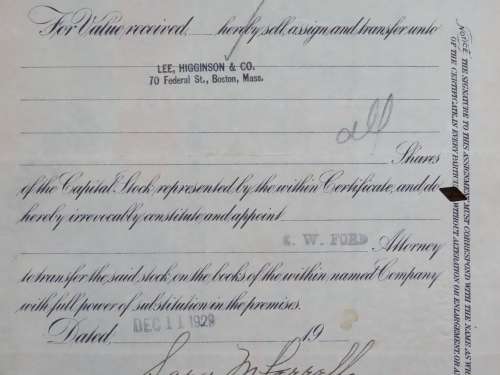 For Value received, hereby sell, assign and transfer unto
LEE, HIGGINSON & CO.
70 Federal St., Boston, Mass.
all
Shares
of the Capital Stock represented by the within Certificate, and do
hereby irrevocably constitute and appoint
W. FORD Attorney
to transfer the said stock on the books of the within named Company
with full power of substitution in the premises.
Dated, DEC 11 1929 19
NOTICE THE SIGNATURE TO THIS ASSIGNMENT MUST CORRESPOND WITH THE NAME AS
OF THE CERTIFICATE IN EVERY PARTICULAR WITHOUT ALTERATION OR ENLARGEMENT OR